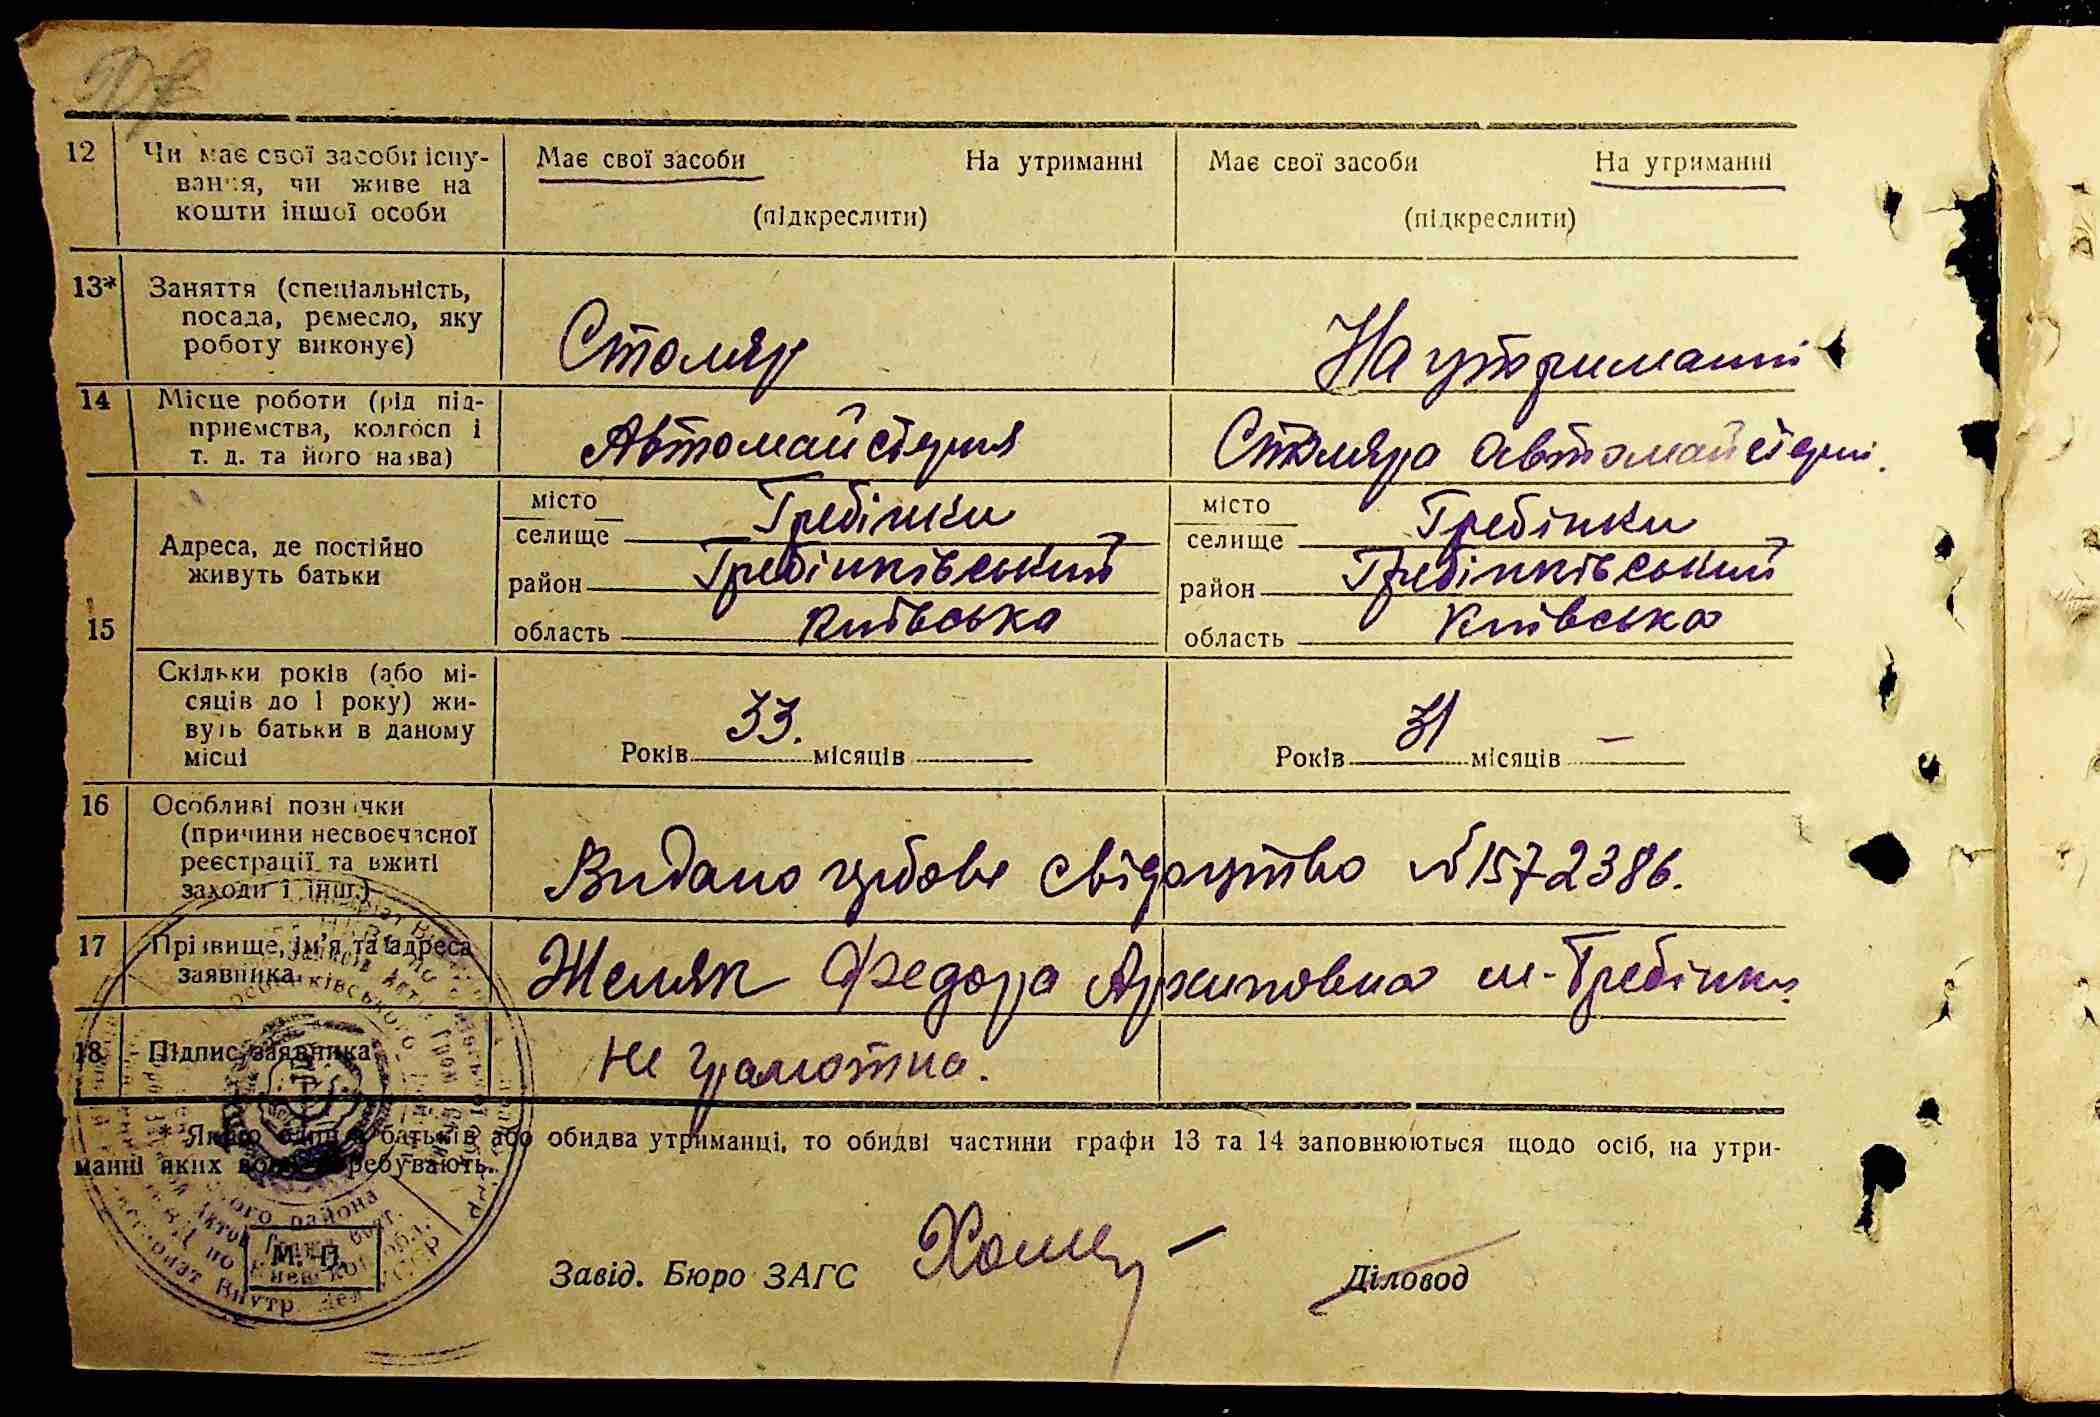 12 Чи має свої засоби існу-
вання, чи живе на
кошти іншої особи
Має свої засоби На утриманні
(підкреслити)
Має свої засоби На утриманні
(підкреслити)
13* Заняття (спеціальність,
посада, ремесло, яку
роботу виконує)
Столяр
На утриманні
14 Місце роботи (рід під-
приємства, колгосп і
т. д. та його назва)
Автомайстерня
Столяра автомайстерні.
15 Адреса, де постійно
живуть батьки
місто
селище Гребінки
район Гребінківський
область Київська
місто
селище Гребінки
район Гребінківський
область Київська
Скільки років (або мі-
сяців до 1 року) жи-
вуть батьки в даному
місці
Років 33. місяців
Років 31 місяців —
16 Особливі позначки
(причини несвоєчасної
реєстрації та вжиті
заходи і інш.)
Видано свідоцтво №1572386.
17 Прізвище, ім'я та адреса
заявника
Желяк Федора Архиповна м-Гребінки
18 Підпис заявника
Не грамотна.
* Якщо один з батьків або обидва утриманці, то обидві частини графи 13 та 14 заповнюються щодо осіб, на утри-
манні яких вони перебувають.
М. П.
Завід. Бюро ЗАГС
Діловод